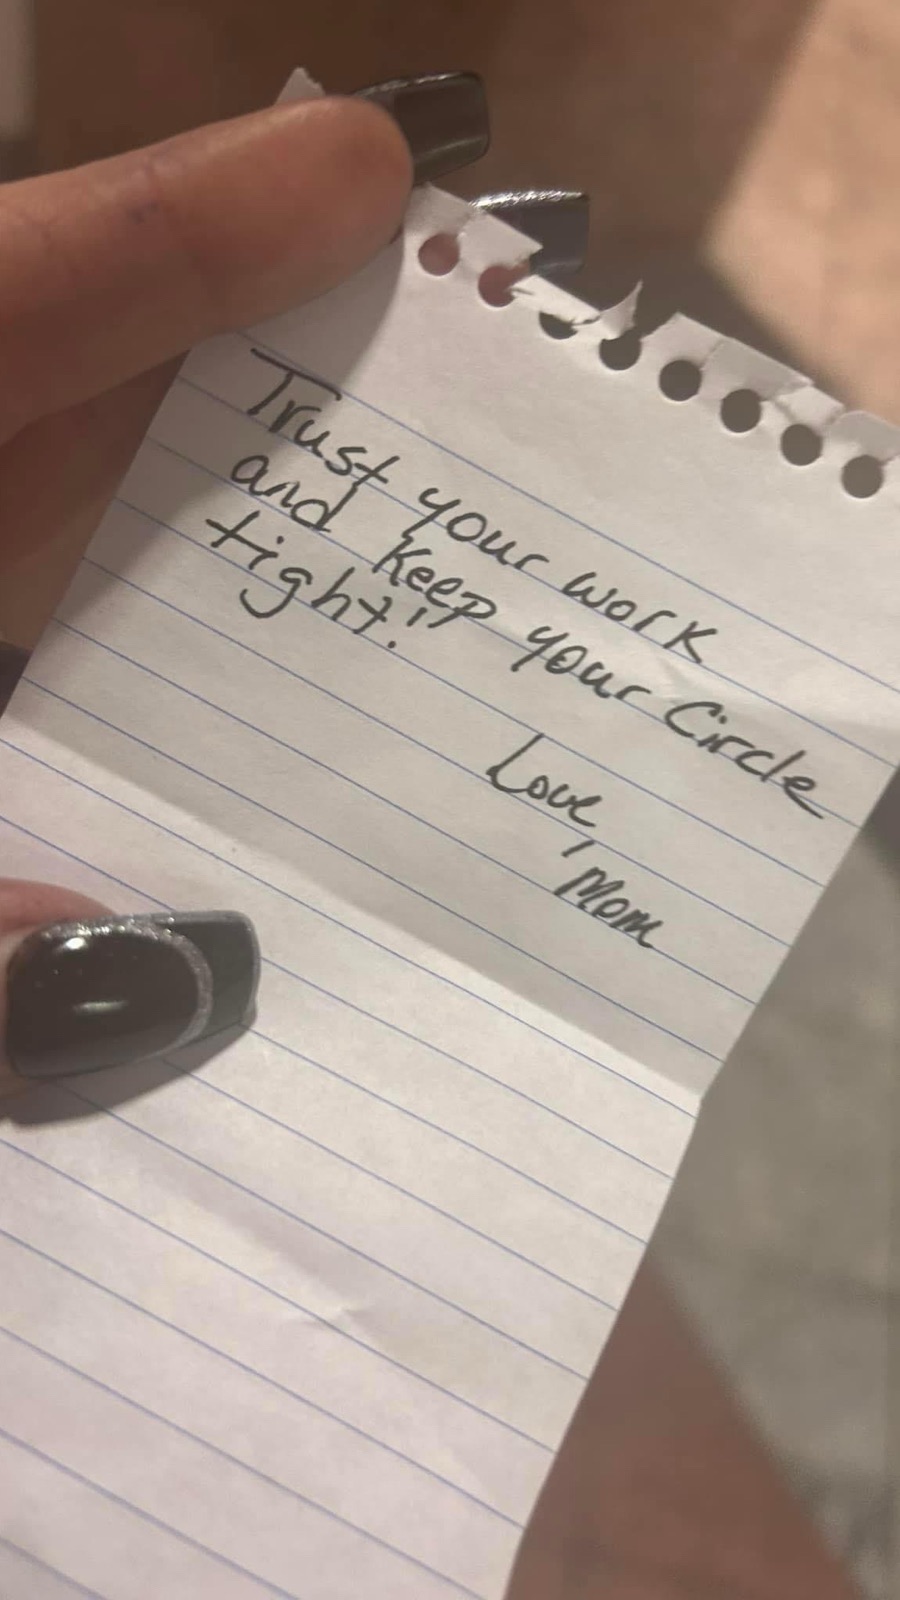 Trust your work
and keep your Circle
tight!
Love,
Mom